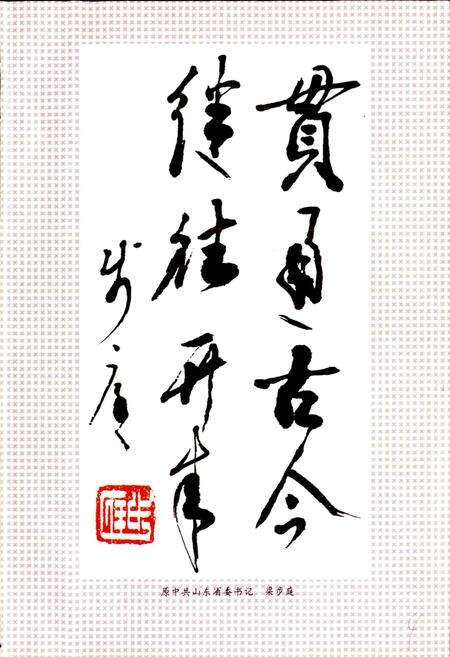 贯通古今
继往开来
步庭
原中共山东省委书记 梁步庭